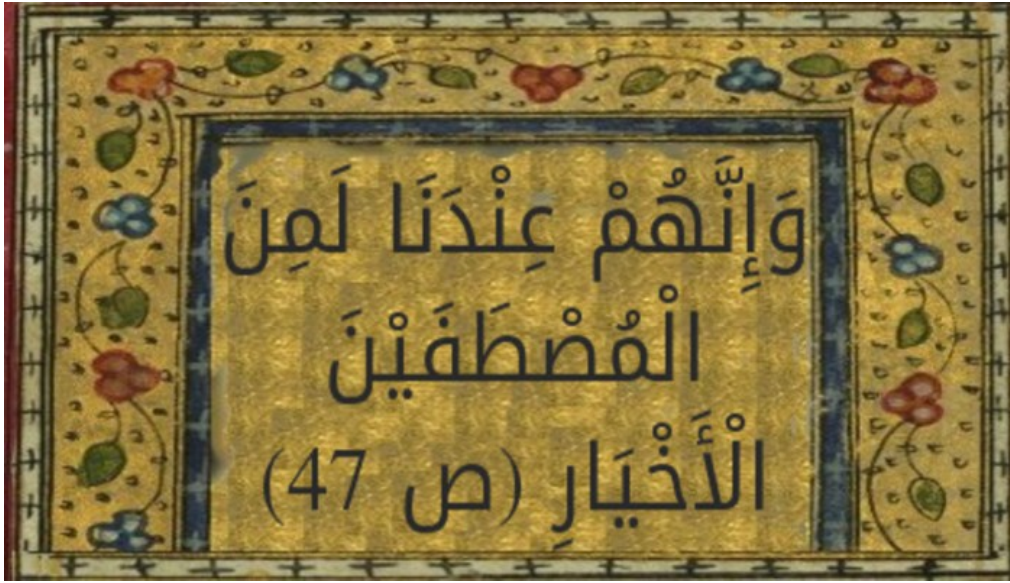 وَإِنَّهُمْ عِنْدَنَا لَمِنَ
الْمُصْطَفَيْنَ
الْأَخْيَارِ (ص 47)